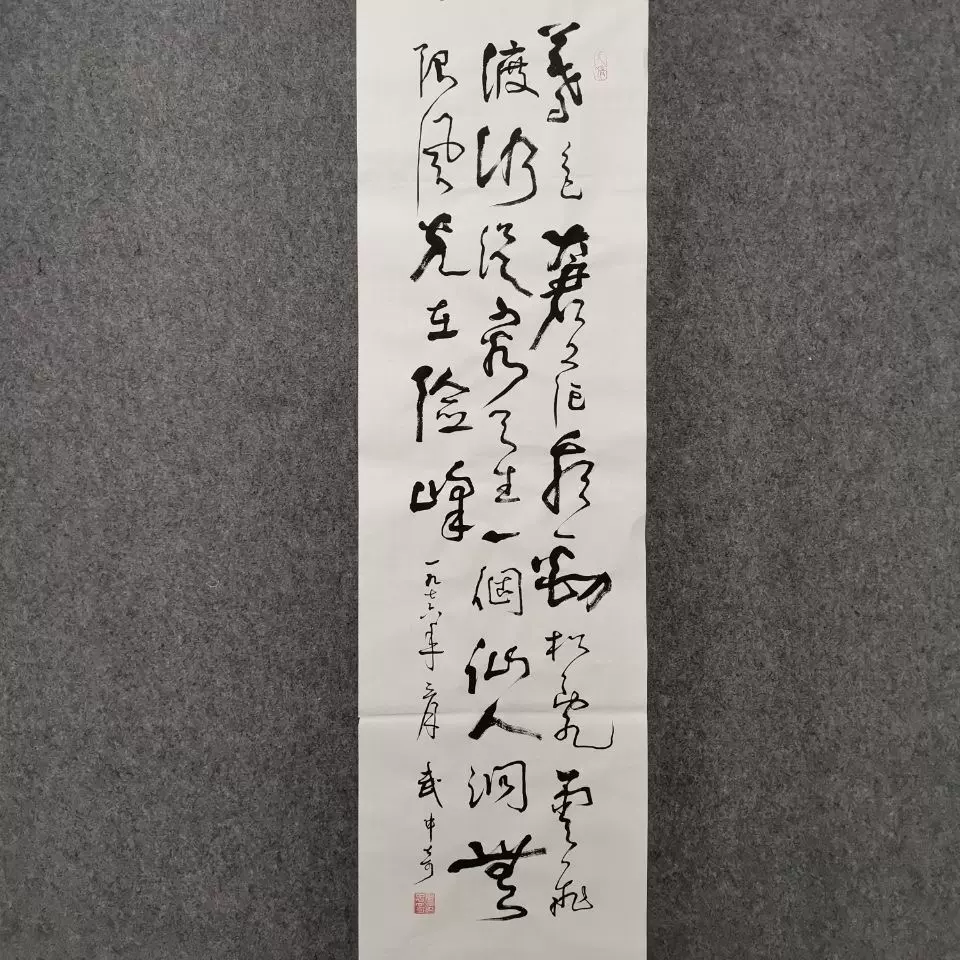 暮色蒼茫看劲松乱雲飛
渡仍從容天生一個仙人洞無
限風光在險峰一九七六年二月武中奇